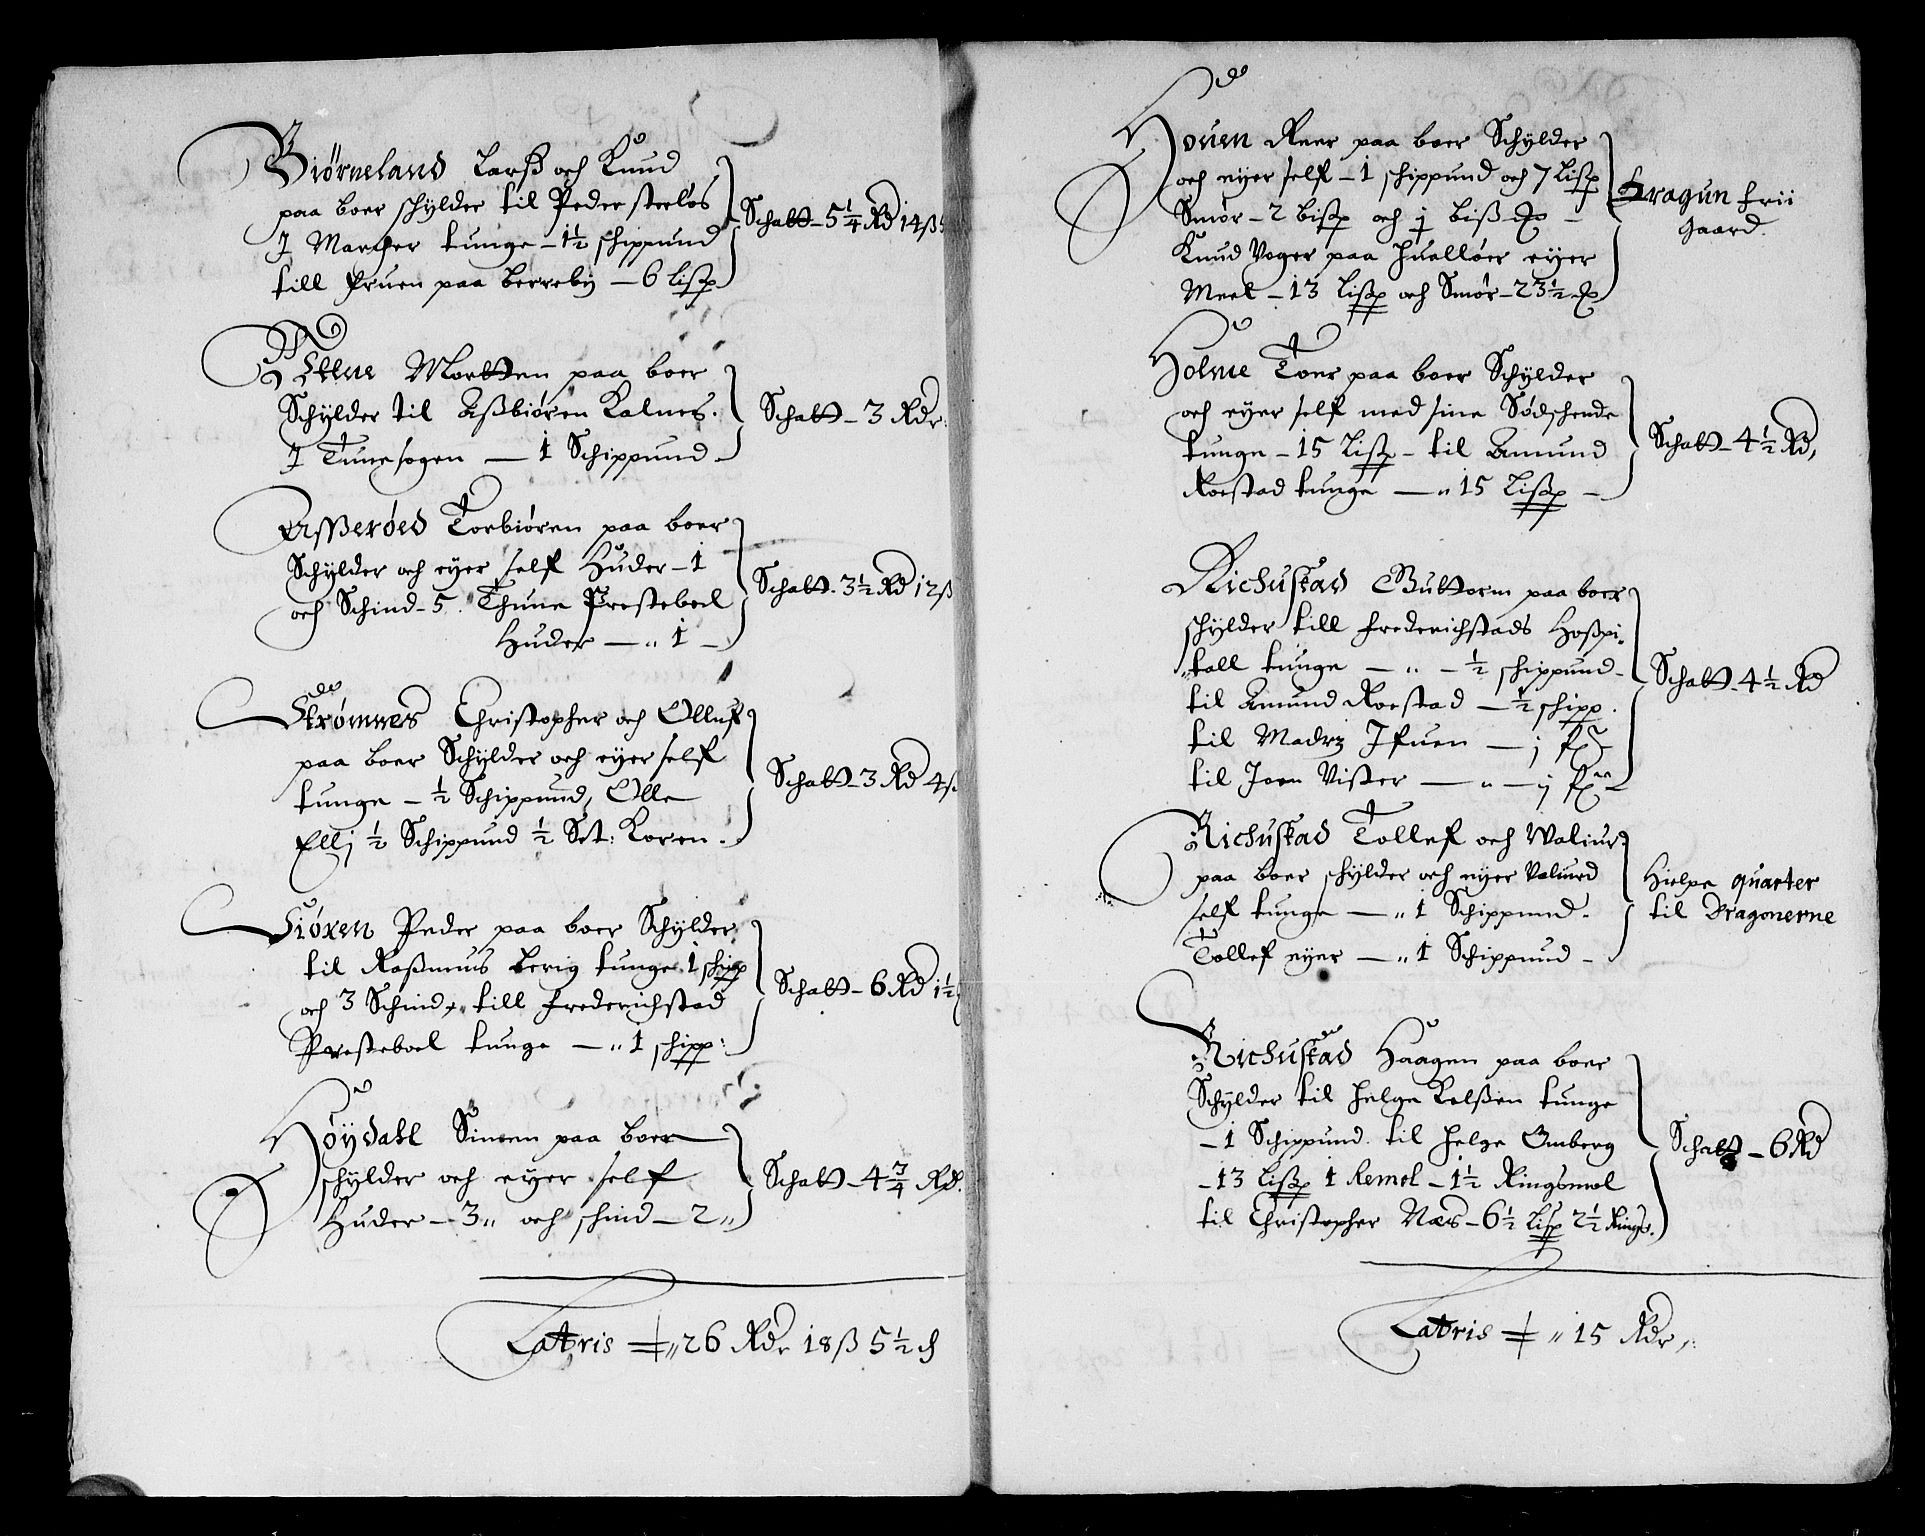 Biørneland Larß och Knud
paa boer schylder til Peder
J Marcher tunge - 1½ schippund
till Fruen paa Berreby - 6 Lisp
Schatt - 5¼ Rd 14 ß
Morten paa boer
Schylder til Aßbiøren Kalnes.
J Tune sogen — 1 Schippund -
Schatt - 3 Rdr
Torbiøren paa boer
Schylder och eyer self Huder - 1
och Schind - 5. Thune Presteboel
Huder — „ 1 -
Schatt - 3½ Rd 12 ß
Strømnes Christopher och Olluf
paa boer Schylder och eyer self
tunge - ½ Schippund, Olle
Ellj ½ Schippund ½ Set: Koren.
Schatt - 3 Rd 4 ß
Peder paa boer Schylder
til Raßmus Berig tunge 1 schipp
och 3 Schind, till Frederichstad
Presteboel tunge — „ 1 schipp:
Schatt - 6 Rd 1½
Høydahl Simen paa boer
schylder och eyer self
Huder - 3 „ och schind - 2 „
Schatt - 4¾ Rd.
Latris „ 26 Rdr 18 ß 5½ d
Houen Reer paa boer Schylder
och eyer self - 1 schippund och 7 Lisp
Smør - 2 Bißp och j Biß
Knud Voger paa Hualløer eyer
Meel - 13 Lißp och Smør - 23½
Dragun frii
gaard.
Holme Toer paa boer Schylder
och eyer self med sine Sødschende
tunge - 15 Lißp - til Amund
Roestad tunge — „ 15 Lißp -
Schatt - 4½ Rd,
Richustad Guttorm paa boer
schylder till Frederichstads Hoßpi„
„tall tunge — „ - ½ schippund -
til Amund Roestad - ½ schipp.
til Madtz Ifuen — j
til Joen Vister — „ — j
Schatt - 4½ Rd
Richustad Tollef och Waliur
paa boer schylder och eyer Valiurd
self tunge — „ 1 Schippund -
Tollef eyer — „ 1 Schippund -
Hielpe quarter
til Dragonerne
Richustad Haagen paa boer
Schylder til Helge Kelßen tunge
- 1 Schippund til Helge Omberg
- 13 Lißp 1 Remel - 1½ Ringsmel
til Christopher Næs - 6½ Lisp 2½ Rings.
Schatt - 6 Rd
Latris „ 15 Rdr